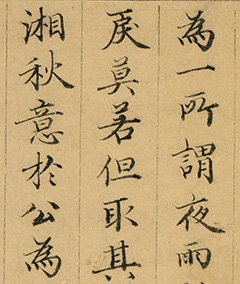 為一所謂夜雨
戾莫若但取其
湘秋意於公為